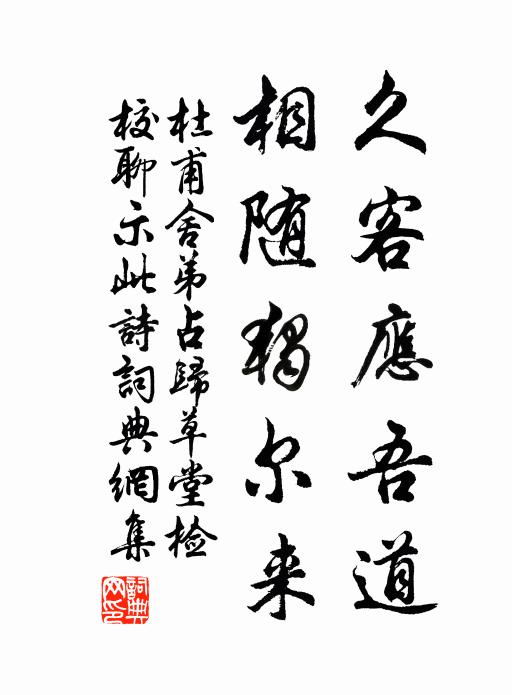 久客應吾道
相随獨尔来
杜甫舍弟占歸草堂检
校聊示此詩詞典網集